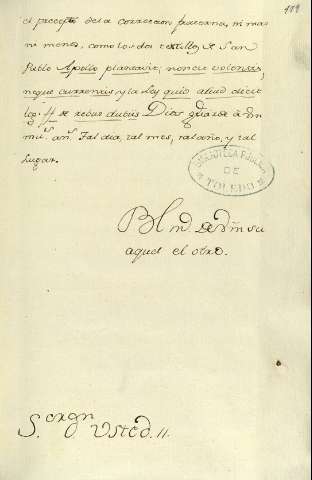 109
el precepto de la correccion fraterna, ni mas
ni menos, como los dos textillos de San
Pablo Apollo plantavit, non est volentis,
neque currentis, y la Ley quid aliud dicit
leg. ff de rebus dubiis Dios guarde à Vm
mus. añs. Tal dia, tal mes, tal año, y tal
Lugar.
BIBLIOTECA PUBLICA
DE
TOLEDO
Bl md. de Vm su
aquel el otro.
Sor
Usted 11.